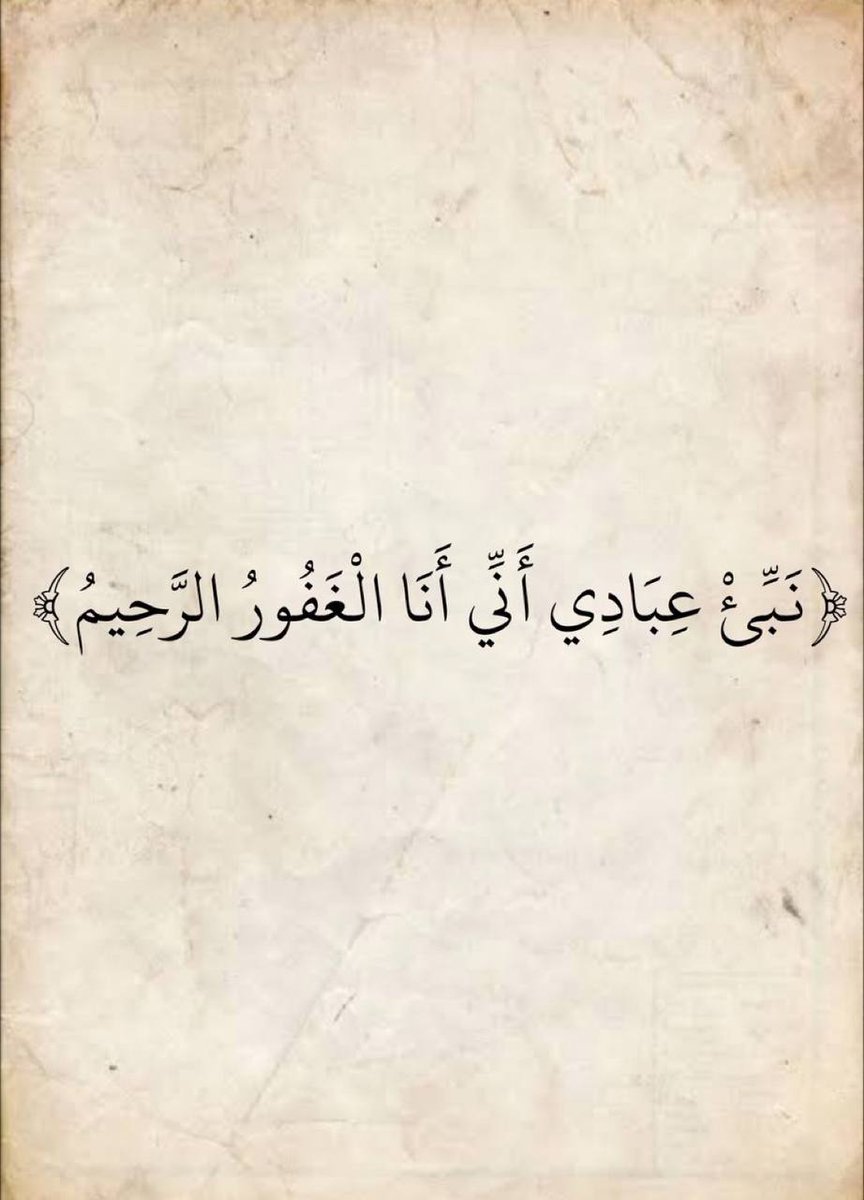 ﴿نَبِّئْ عِبَادِي أَنِّي أَنَا الْغَفُورُ الرَّحِيمُ﴾